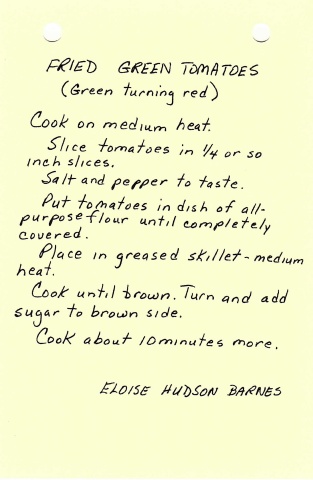 FRIED GREEN TOMATOES
(Green turning red)
Cook on medium heat.
Slice tomatoes in 1/4 or so
inch slices.
Salt and pepper to taste.
Put tomatoes in dish of all-
purpose flour until completely
covered.
Place in greased skillet - medium
heat.
Cook until brown. Turn and add
sugar to brown side.
Cook about 10 minutes more.
ELOISE HUDSON BARNES